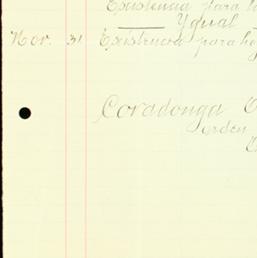 Existencia para
Ygual
Nov. 31 Existencia para hoy
Covadonga
Orden